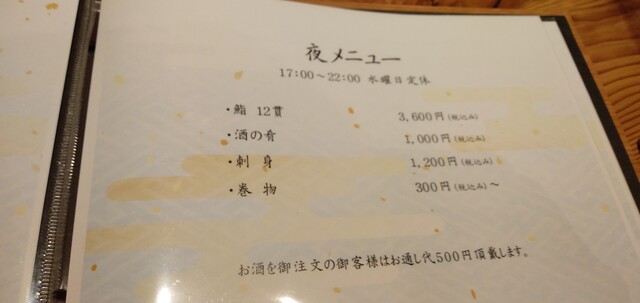 夜メニュー
17:00～22:00 水曜日定休
・鮨 12貫 3,600円(税込み)
・酒の肴 1,000円(税込み)
・刺 身 1,200円(税込み)
・巻 物 300円(税込み)～
お酒を御注文の御客様はお通し代500円頂戴します。